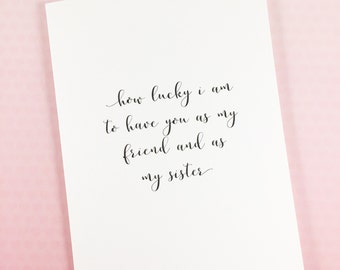 how lucky i am
to have you as my
friend and as
my sister